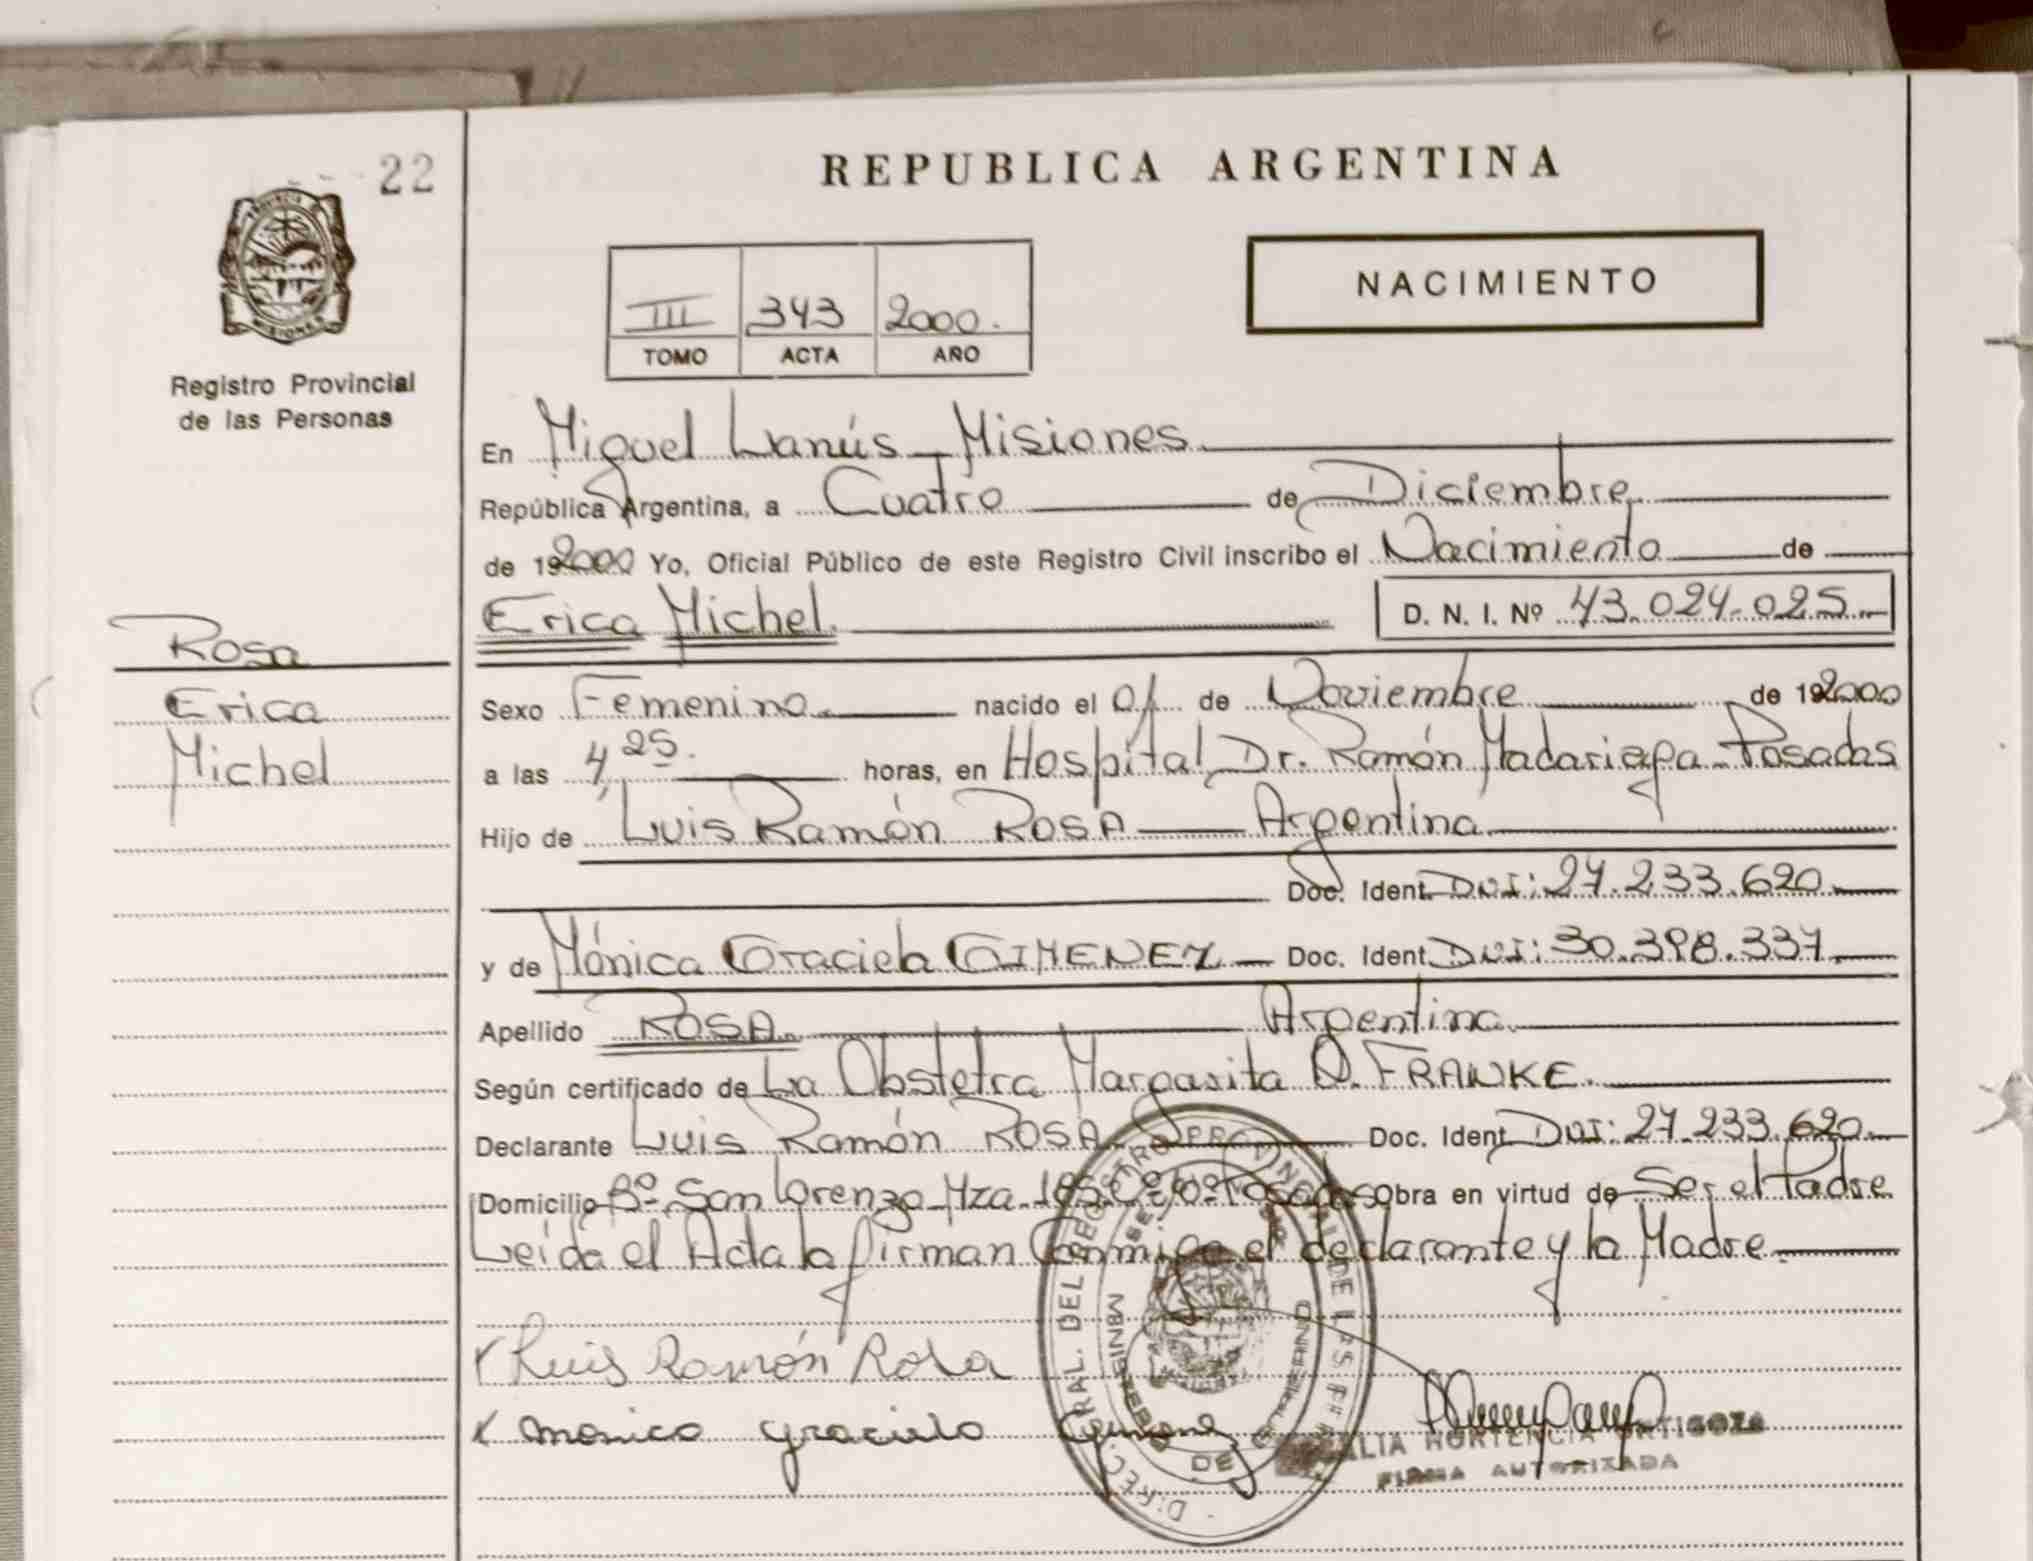 22
REPUBLICA ARGENTINA
NACIMIENTO
III 343 2000.
TOMO ACTA AÑO
PROVINCIA DE MISIONES
Registro Provincial
de las Personas
En Miguel Lanús - Misiones
República Argentina, a Cuatro de Diciembre
de 192000 Yo, Oficial Público de este Registro Civil inscribo el Nacimiento de
Erica Michel. D. N. I. Nº 43.024.025
Rosa
Erica
Michel
Sexo Femenino nacido el 01 de Noviembre de 192000
a las 4,25. horas, en Hospital Dr. Ramón Madariaga - Posadas
Hijo de Luis Ramón ROSA — Argentina
Doc. Ident. DNI: 27.233.620
y de Mónica Graciela GIMENEZ — Doc. Ident. DNI: 30.398.337
Apellido ROSA Argentina
Según certificado de La Obstetra Margarita D. FRANKE.
Declarante Luis Ramón ROSA Doc. Ident. DNI: 27.233.620
Domicilio Bº San Lorenzo Mza. Posadas Obra en virtud de Ser el Padre
Leída el Acta la firman Conmigo el declarante y la Madre
x Luis Ramón Rosa
x monica graciela Gimenez
DIREC. GRAL. DEL REGISTRO PROVINCIAL DE LAS PERSONAS
MINISTERIO DE GOBIERNO
HORTENCIA ORTIGOZA
FIRMA AUTORIZADA